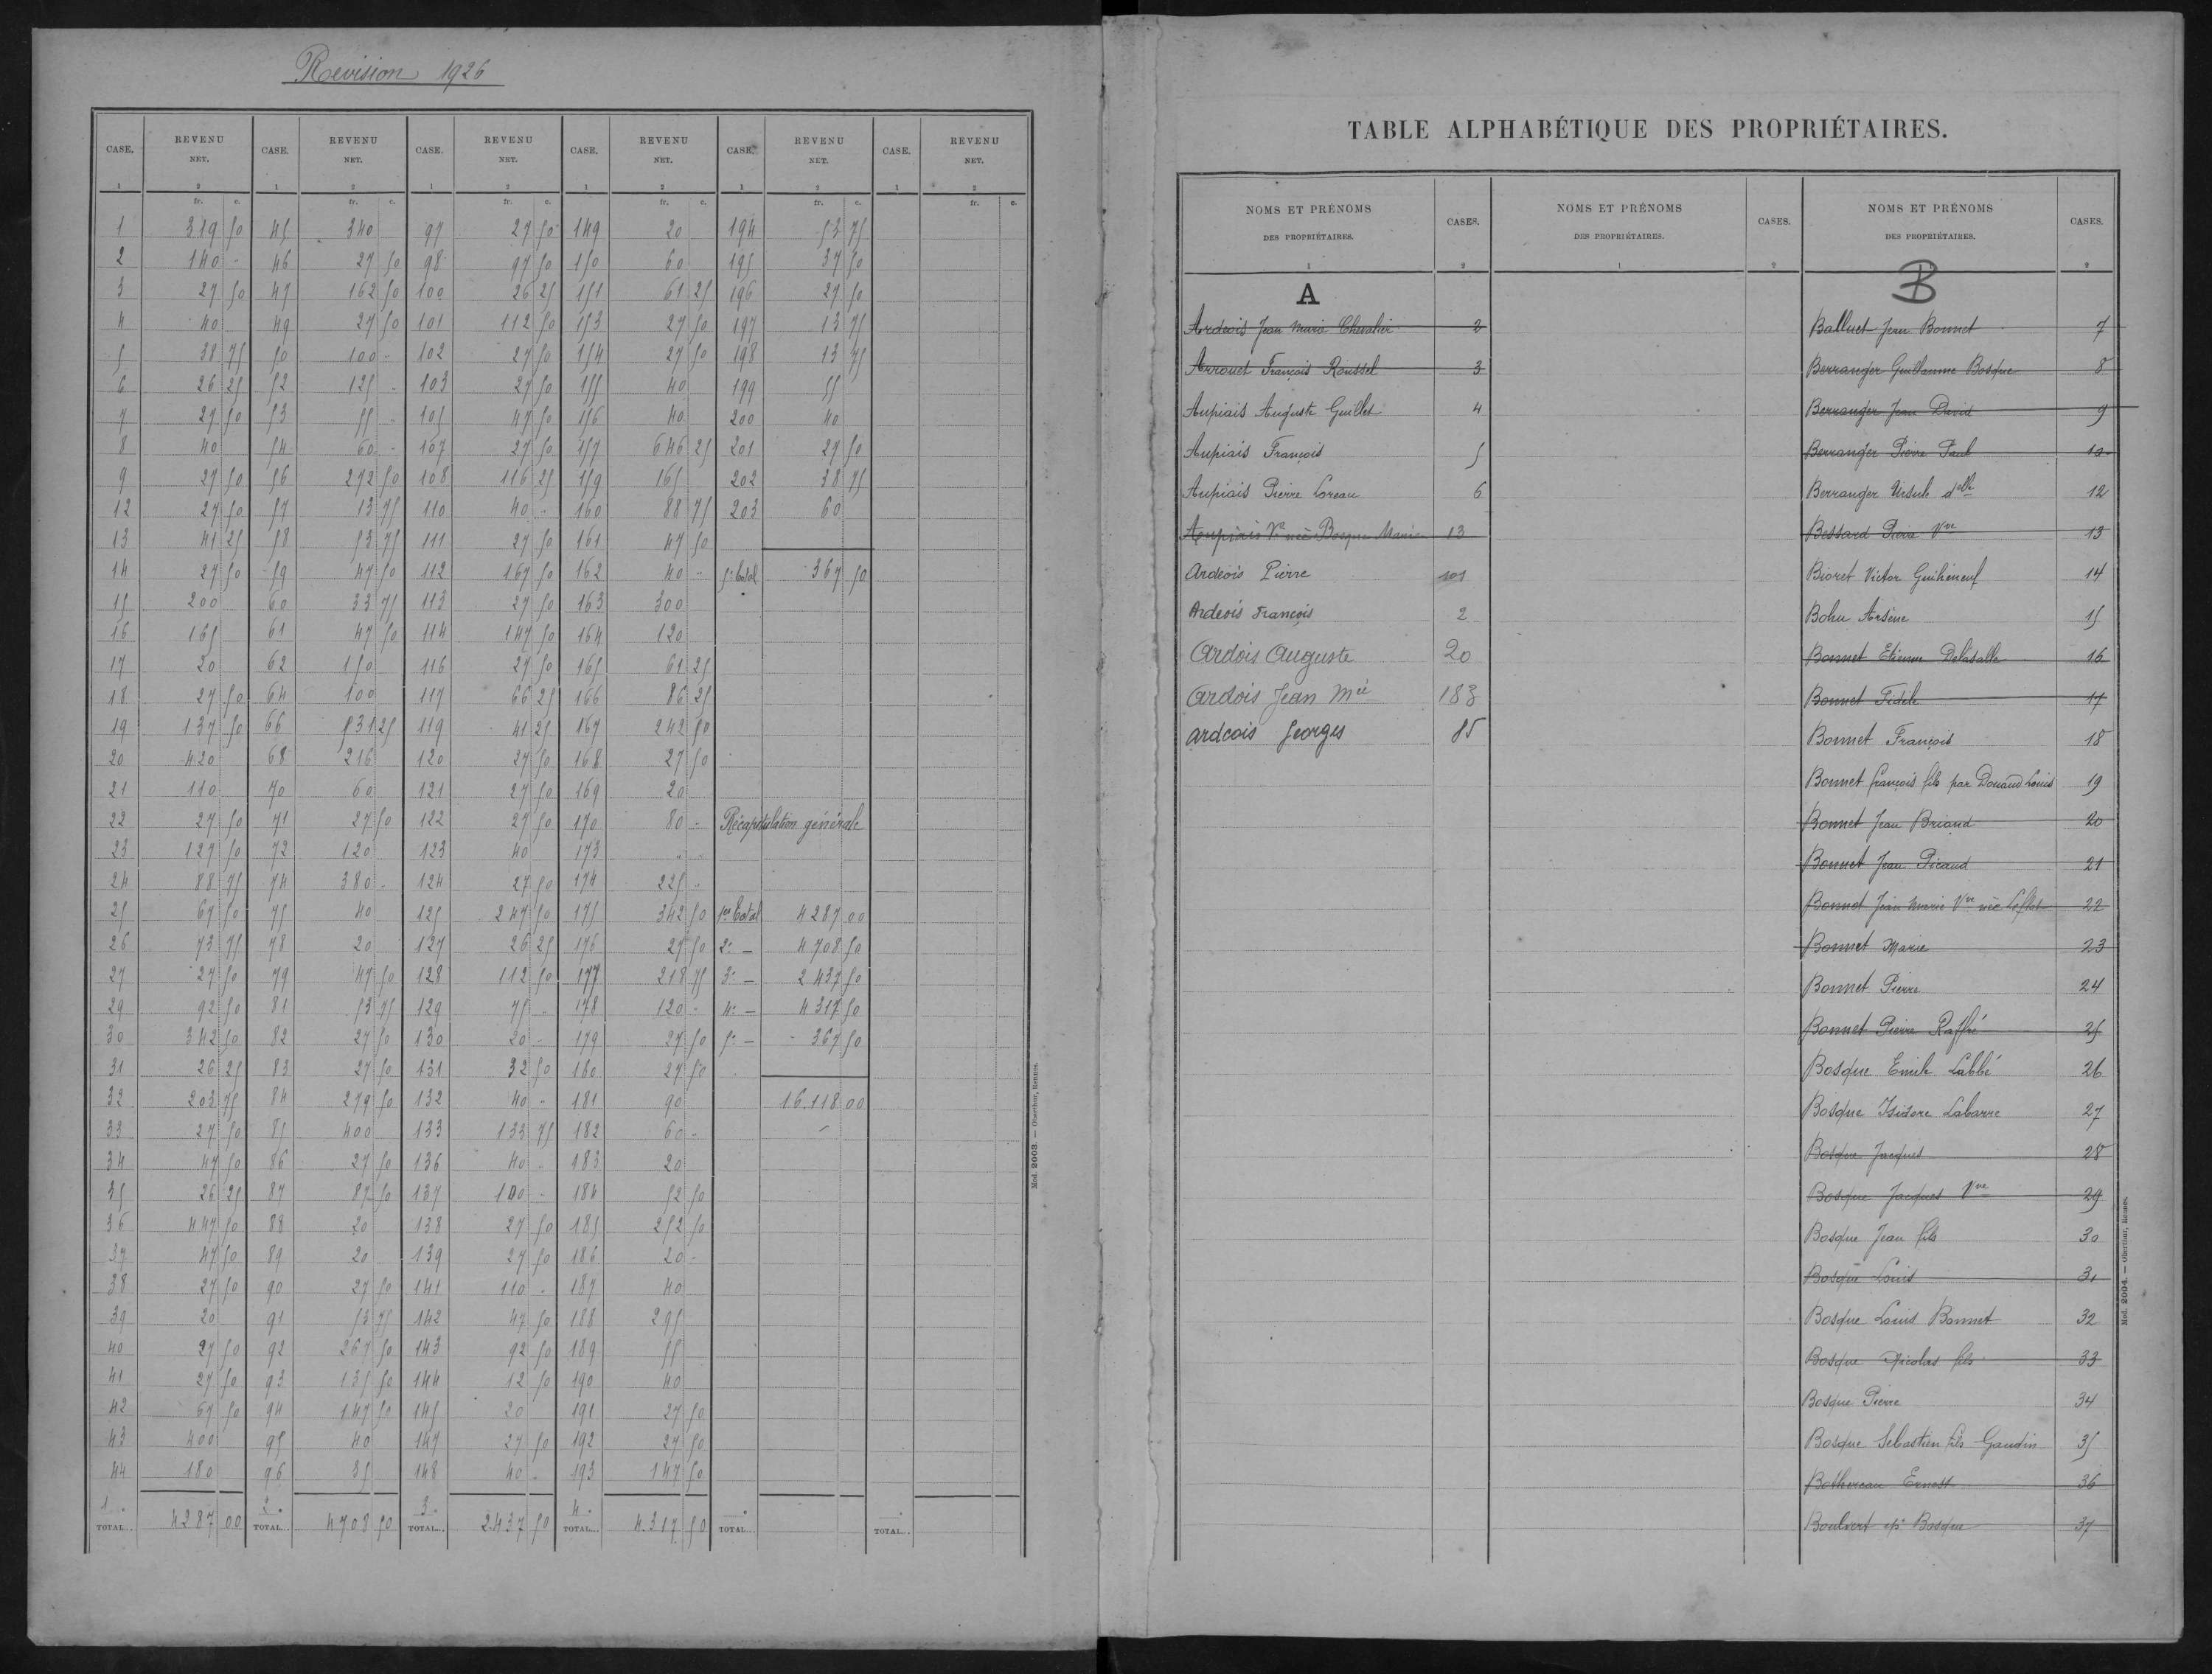 Revision 1926
CASE. REVENU NET. CASE. REVENU NET. CASE. REVENU NET. CASE. REVENU NET. CASE. REVENU NET. CASE. REVENU NET.
1 2 1 2 1 2 1 2 1 2 1 2
fr. c. fr. c. fr. c. fr. c. fr. c. fr. c.
1 319 50 45 340 97 27 50 149 20 194 53 75
2 140 - 46 27 50 98 97 50 150 60 195 37 50
3 27 50 47 162 50 100 26 25 151 61 25 196 27 50
4 40 49 27 50 101 112 50 153 27 50 197 13 75
5 38 75 50 100 - 102 27 50 154 27 50 198 13 75
6 26 25 52 125 - 103 27 50 155 40 199 55
7 27 50 53 55 - 105 47 50 156 40 200 40
8 40 54 60 - 107 27 50 157 646 25 201 27 50
9 27 50 56 272 50 108 116 25 159 165 202 38 75
12 27 50 57 13 75 110 40 - 160 88 75 203 60
13 41 25 58 53 75 111 27 50 161 47 50
14 27 50 59 47 50 112 167 50 162 40 - 5e total 367 50
15 200 60 33 75 113 27 50 163 300
16 165 61 47 50 114 147 50 164 120
17 20 62 150 116 27 50 165 61 25
18 27 50 64 100 117 66 25 166 86 25
19 137 50 66 831 25 119 41 25 167 242 50
20 420 68 216 120 27 50 168 27 50
21 110 70 60 121 27 50 169 20
22 27 50 71 27 50 122 27 50 170 80 - Récapitulation générale
23 127 50 72 120 123 40 173 " -
24 88 75 74 380 - 124 27 50 174 225 -
25 67 50 75 40 125 247 50 175 342 50 1er Total 4287 00
26 73 75 78 20 127 26 25 176 27 50 2e — 4708 50
27 27 50 79 47 50 128 112 50 177 218 75 3e — 2437 50
29 92 50 81 53 75 129 75 - 178 120 - 4e — 4317 50
30 342 50 82 27 50 130 20 - 179 27 50 5e — 367 50
31 26 25 83 27 50 131 32 50 180 27 50
32 203 75 84 279 50 132 40 - 181 90 16.118 00
33 27 50 85 400 133 133 75 182 60 -
34 47 50 86 27 50 136 40 - 183 20
35 26 25 87 87 50 137 100 - 184 52 50
36 447 50 88 20 138 27 50 185 252 50
37 47 50 89 20 139 27 50 186 20 -
38 27 50 90 27 50 141 110 - 187 40
39 20 91 53 75 142 47 50 188 295
40 27 50 92 267 50 143 92 50 189 55
41 27 50 93 135 50 144 12 50 190 40
42 67 50 94 147 50 145 20 191 27 50
43 400 95 40 147 27 50 192 27 50
44 180 96 35 148 40 - 193 147 50
1. TOTAL.. 4287 00 2. TOTAL.. 4708 50 3. TOTAL.. 2.437 50 4. TOTAL.. 4.317 50 TOTAL.. TOTAL..
Mod. 2003. — Oberthur, Rennes.
TABLE ALPHABÉTIQUE DES PROPRIÉTAIRES.
NOMS ET PRÉNOMS DES PROPRIÉTAIRES. CASES. NOMS ET PRÉNOMS DES PROPRIÉTAIRES. CASES. NOMS ET PRÉNOMS DES PROPRIÉTAIRES. CASES.
1 2 1 2 1 2
A
Ardeois Jean Marie Chevalier 2
Arrouet François Roussel 3
Aupiais Auguste Guillet 4
Aupiais François 5
Aupiais Pierre Loreau 6
Aupiais Ve née Bosque Marie 13
Ardeois Pierre 101
Ardeois François 2
Ardois Auguste 20
Ardois Jean Mie 183
Ardeois Georges 85
B
Balluet Jean Bonnet 7
Berranger Guillaume Bosque 8
Berranger Jean David 9
Berranger Pierre Paul 10
Berranger Ursule delle 12
Bessard Pierre Vve 13
Bioret Victor Guiheneuf 14
Bohu Arsène 15
Bonnet Etienne Delasalle 16
Bonnet Fidèle 17
Bonnet François 18
Bonnet François fils par Douaud Louis 19
Bonnet Jean Briand 20
Bonnet Jean Picaud 21
Bonnet Jean Marie Vve née 22
Bonnet Marie 23
Bonnet Pierre 24
Bonnet Pierre Raffié 25
Bosque Emile Labbé 26
Bosque Isidore Labarre 27
Bosque Jacques 28
Bosque Jacques Vve 29
Bosque Jean fils 30
Bosque Louis 31
Bosque Louis Bonnet 32
Bosque Nicolas fils 33
Bosque Pierre 34
Bosque Sébastien fils Gaudin 35
Bothereau Ernest 36
Boulvert Bosque 37
Mod. 2004. — Oberthur, Rennes.